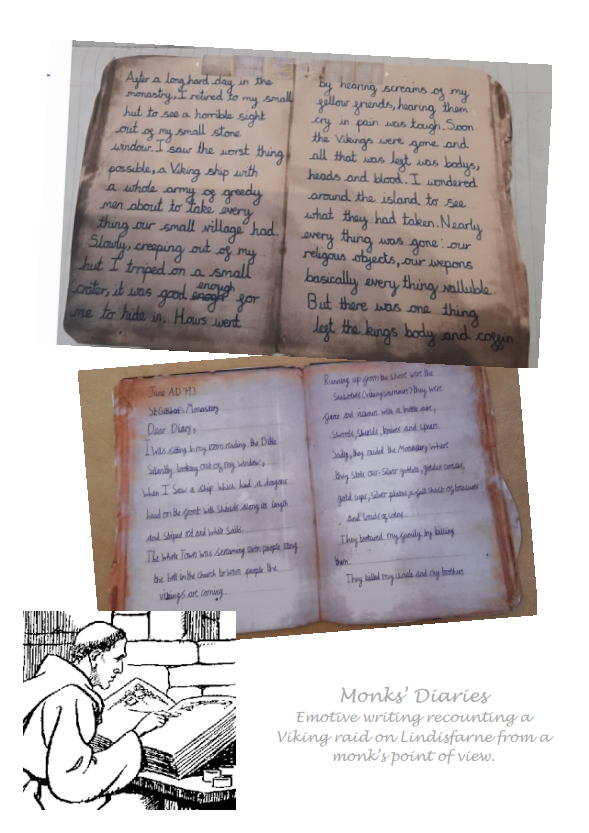 After a long hard day in the
monastry, I retired to my small
hut to see a horrible sight
out of my small stone
window. I saw the worst thing
possible, a Viking ship with
a whole army of greedy
men about to take every
thing our small village had.
Slowly, creeping out of my
hut I triped on a small
crater, it was good enough for
me to hide in. Hours went
by hearing screams of my
fellow friends, hearing them
cry in pain was tough. Soon
the Vikings were gone and
all that was left was bodys,
heads and blood. I wondered
around the island to see
what they had taken. Nearly
every thing was gone: our
religous objects, our wepons
basically every thing valluble.
But there was one thing
left the kings body and coffin.
June AD 793
St Monastry
Dear Diary,
I was sitting in my room reading the Bible
Silently looking out of my window,
When I Saw a ship which had a dragons
head on the front with Shields along its length
and striped red and white Sails.
The Whole Town was screaming people rang
the bell in the church to warn people the
vikings are coming.
Running up from the Shore were the
they were
and vicious with a battle axe,
Swords, Shields, knives and spears.
Sadly, they raided the Monastry where
they Stole our Silver goblets, golden
gold cups, Silver plates a full chest of treasures
and loads of coins.
They tortured my family by killing
them.
They killed my uncle and my brothers
Monks’ Diaries
Emotive writing recounting a
Viking raid on Lindisfarne from a
monk’s point of view.